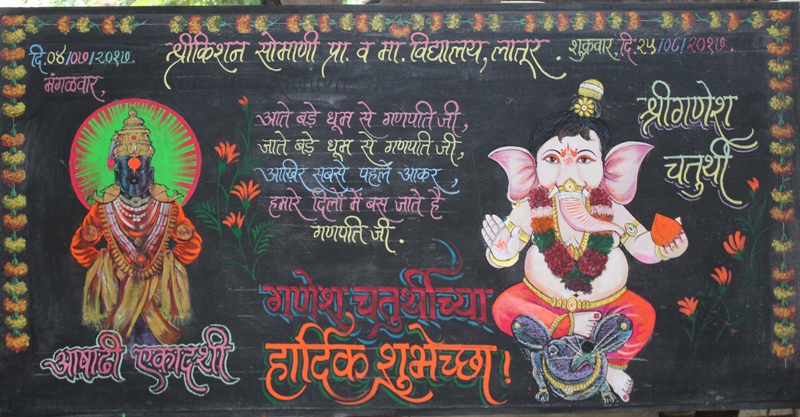 दि.०४/०७/२०१७.
मंगळवार,
श्रीकिशन सोमाणी प्रा. व मा. विद्यालय, लातूर.
शुक्रवार, दि.२५/०८/२०१७.
श्रीगणेश
चतुर्थी
आते बड़े धूम से गणपति जी,
जाते बड़े धूम से गणपति जी,
आखिर सबसे पहले आकर,
हमारे दिलों में बस जाते है
गणपति जी.
गणेश चतुर्थीच्या
हार्दिक शुभेच्छा!
आषाढी एकादशी